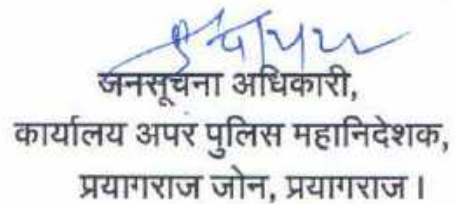 जनसूचना अधिकारी,
कार्यालय अपर पुलिस महानिदेशक,
प्रयागराज जोन, प्रयागराज।